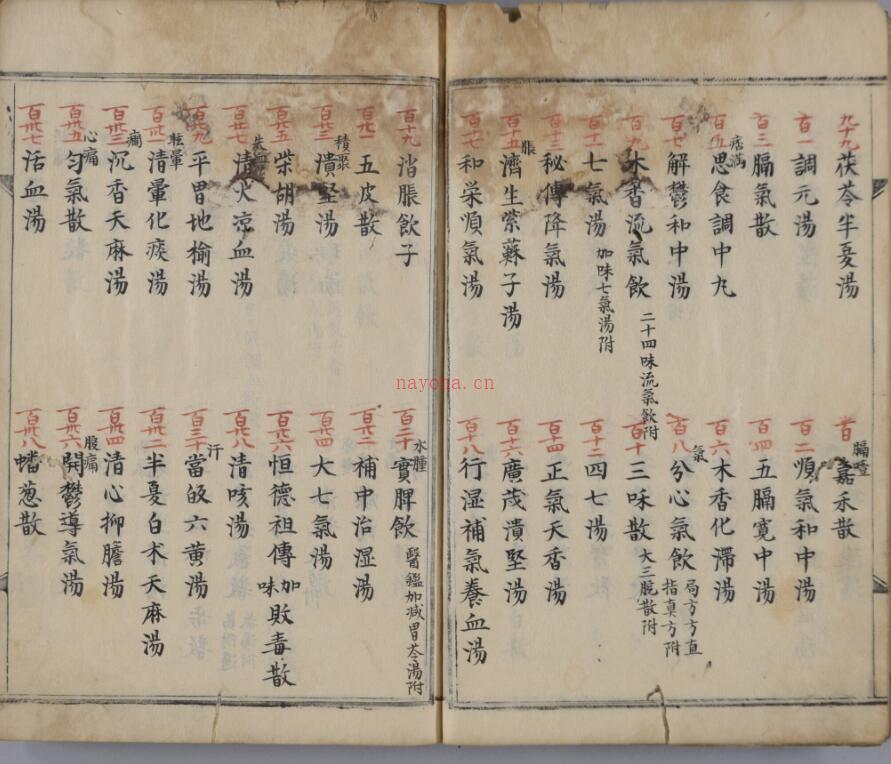 九十九 茯苓半夏湯
膈噎
百 嘉禾散
百一 調元湯
百二 順氣和中湯
百三 膈氣散
百四 五膈寛中湯
痞満
百五 思食調中丸
百六 木香化滯湯
百七 解鬱和中湯
氣
百八 分心氣飲 局方方直指真方附
百九 木香流氣飲 二十四味流氣飲附
百十 三味散 大三脘散附
百十一 七氣湯 加味七氣湯附
百十二 四七湯
百十三 秘傳降氣湯
百十四 正氣天香湯
脹
百十五 濟生紫蘇子湯
百十六 廣茂潰堅湯
百十七 和栄順氣湯
百十八 行湿補氣養血湯
百十九 消脹飲子
水腫
百二十 實脾飲 醫鑑加減胃苓湯附
百廿一 五皮散
百廿二 補中治湿湯
積聚
百廿三 潰堅湯
百廿四 大七氣湯
百廿五 柴胡湯
百廿六 恒德祖傳加味敗毒散
百廿七 清火凉血湯
百廿八 清咳湯
百廿九 平胃地楡湯
汗
百三十 當歸六黄湯
眩暈
百卅一 清暈化痰湯
百卅二 半夏白朮天麻湯
癇
百卅三 沉香天麻湯
百卅四 清心抑膽湯
心痛
百卅五 匀氣散
腹痛
百卅六 開鬱導氣湯
百卅七 活血湯
百卅八 蟠葱散
nayona.cn